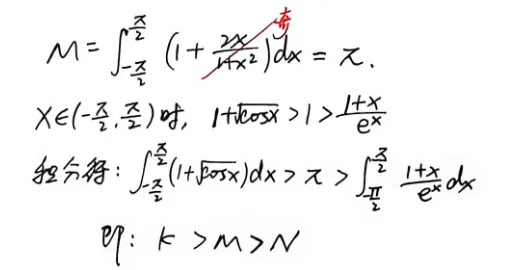 M = ∫_{-π/2}^{π/2} (1 + 2x/(1+x²)) dx = π. 奇
x∈(-π/2, π/2) 时, 1+√cosx > 1 > (1+x)/e^x
积分得: ∫_{-π/2}^{π/2} (1+√cosx) dx > π > ∫_{-π/2}^{π/2} (1+x)/e^x dx
即: K > M > N